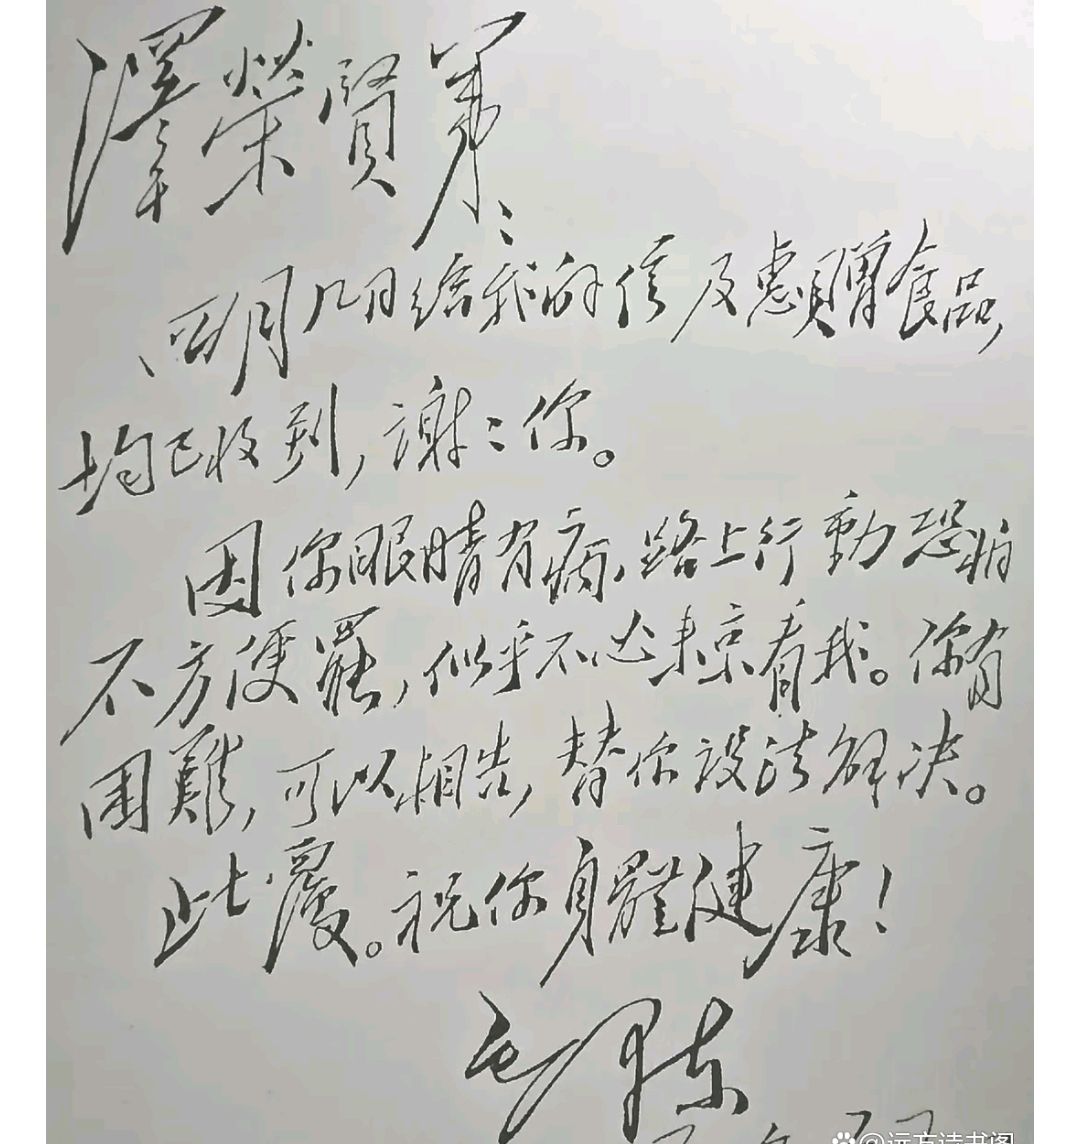 澤榮賢弟：
四月几日給我的信及惠贈食品，
均已收到，謝：你。
因你眼睛有病，路上行動恐怕
不方便罷，似乎不必来京看我。你有
困難，可以相告，替你設法解决。
此覆。祝你身體健康！
毛澤东
@远方读书阁